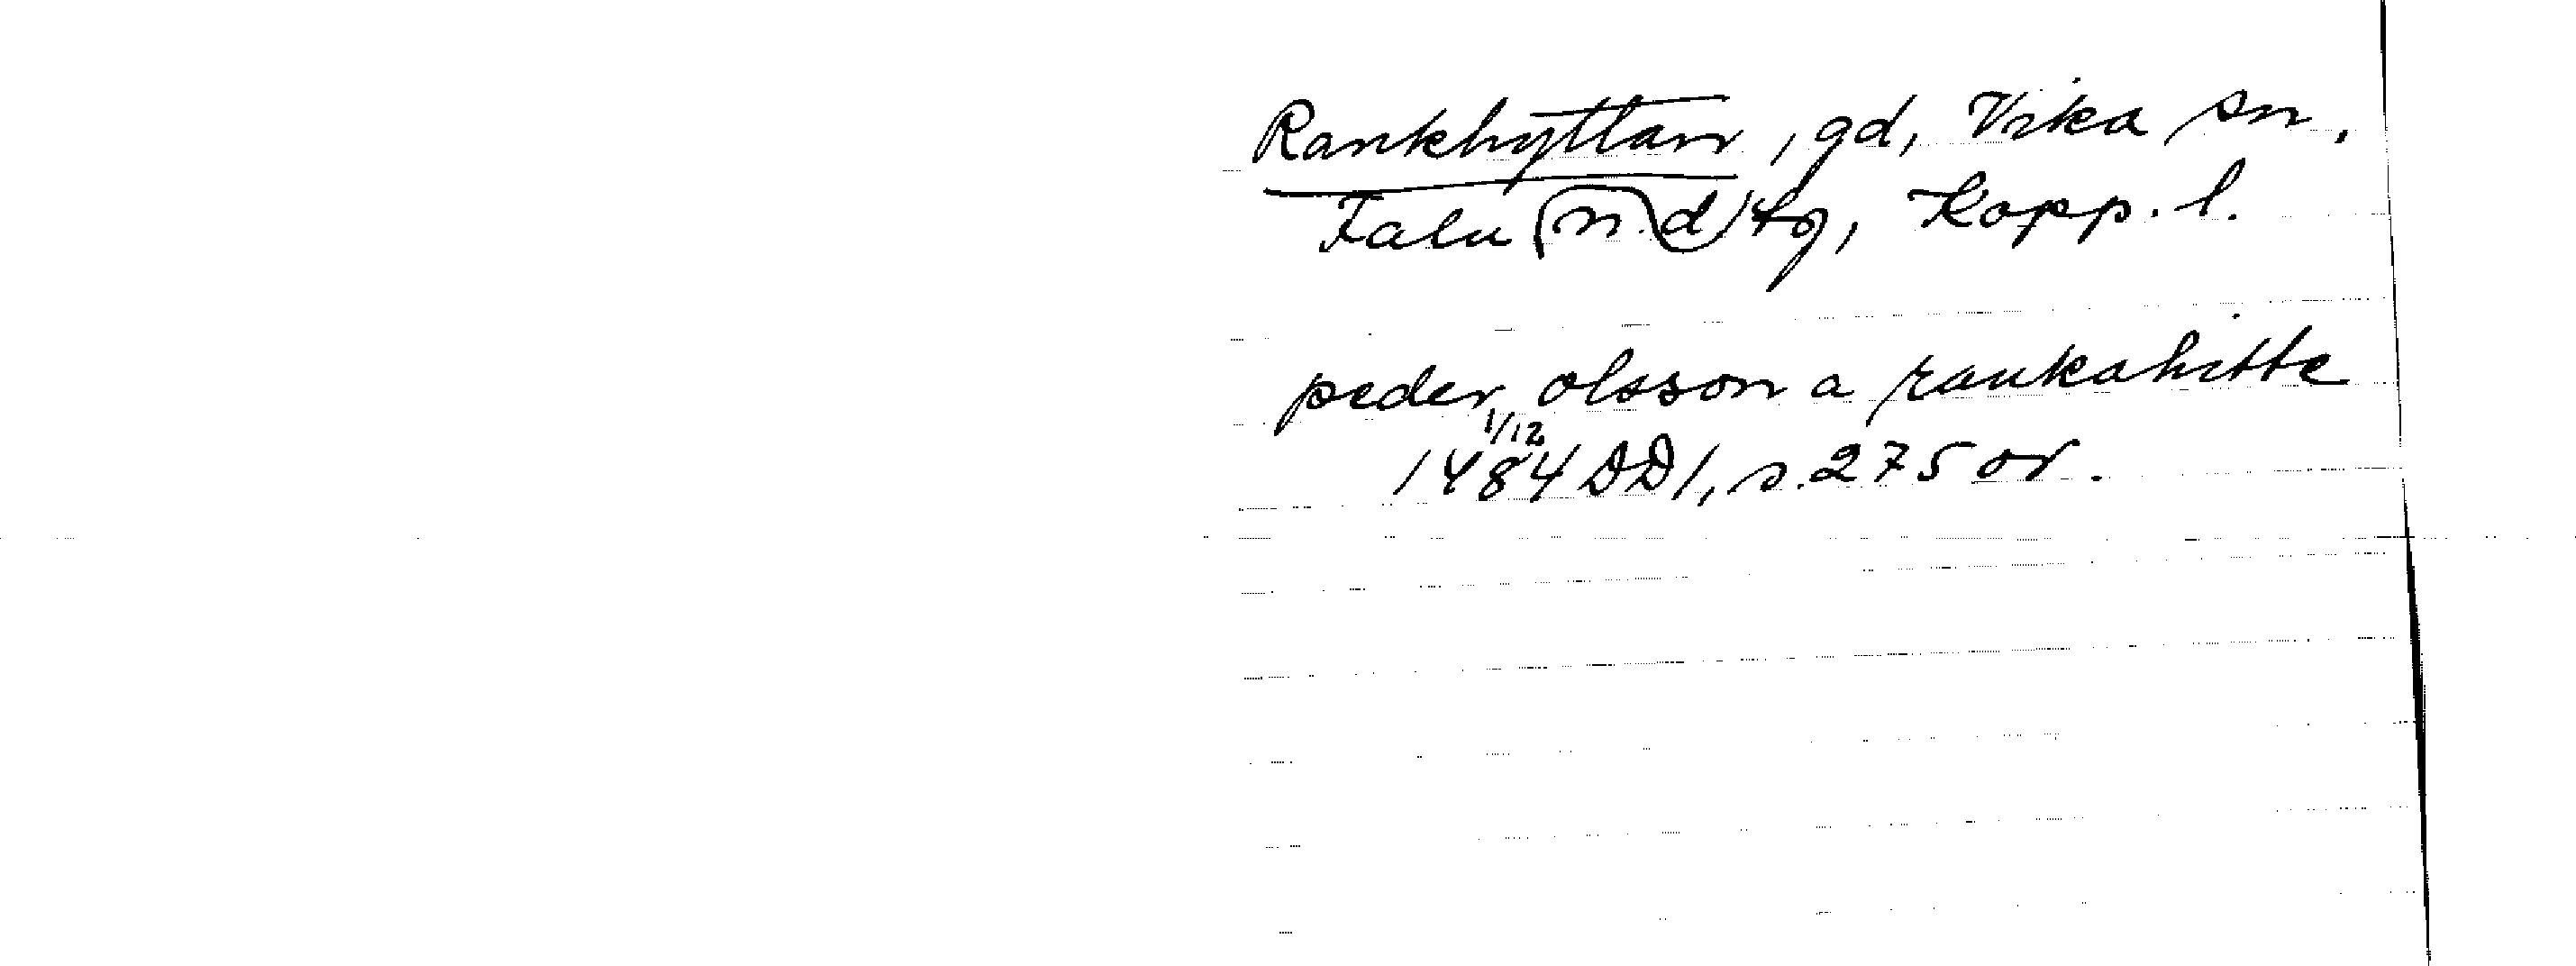 Rankhyttan, gd, Vika sn,
Falu n. d. tg, Kopp. l.
peder olsson a rankahitte
1/12
1484 DD1, s. 275 or.